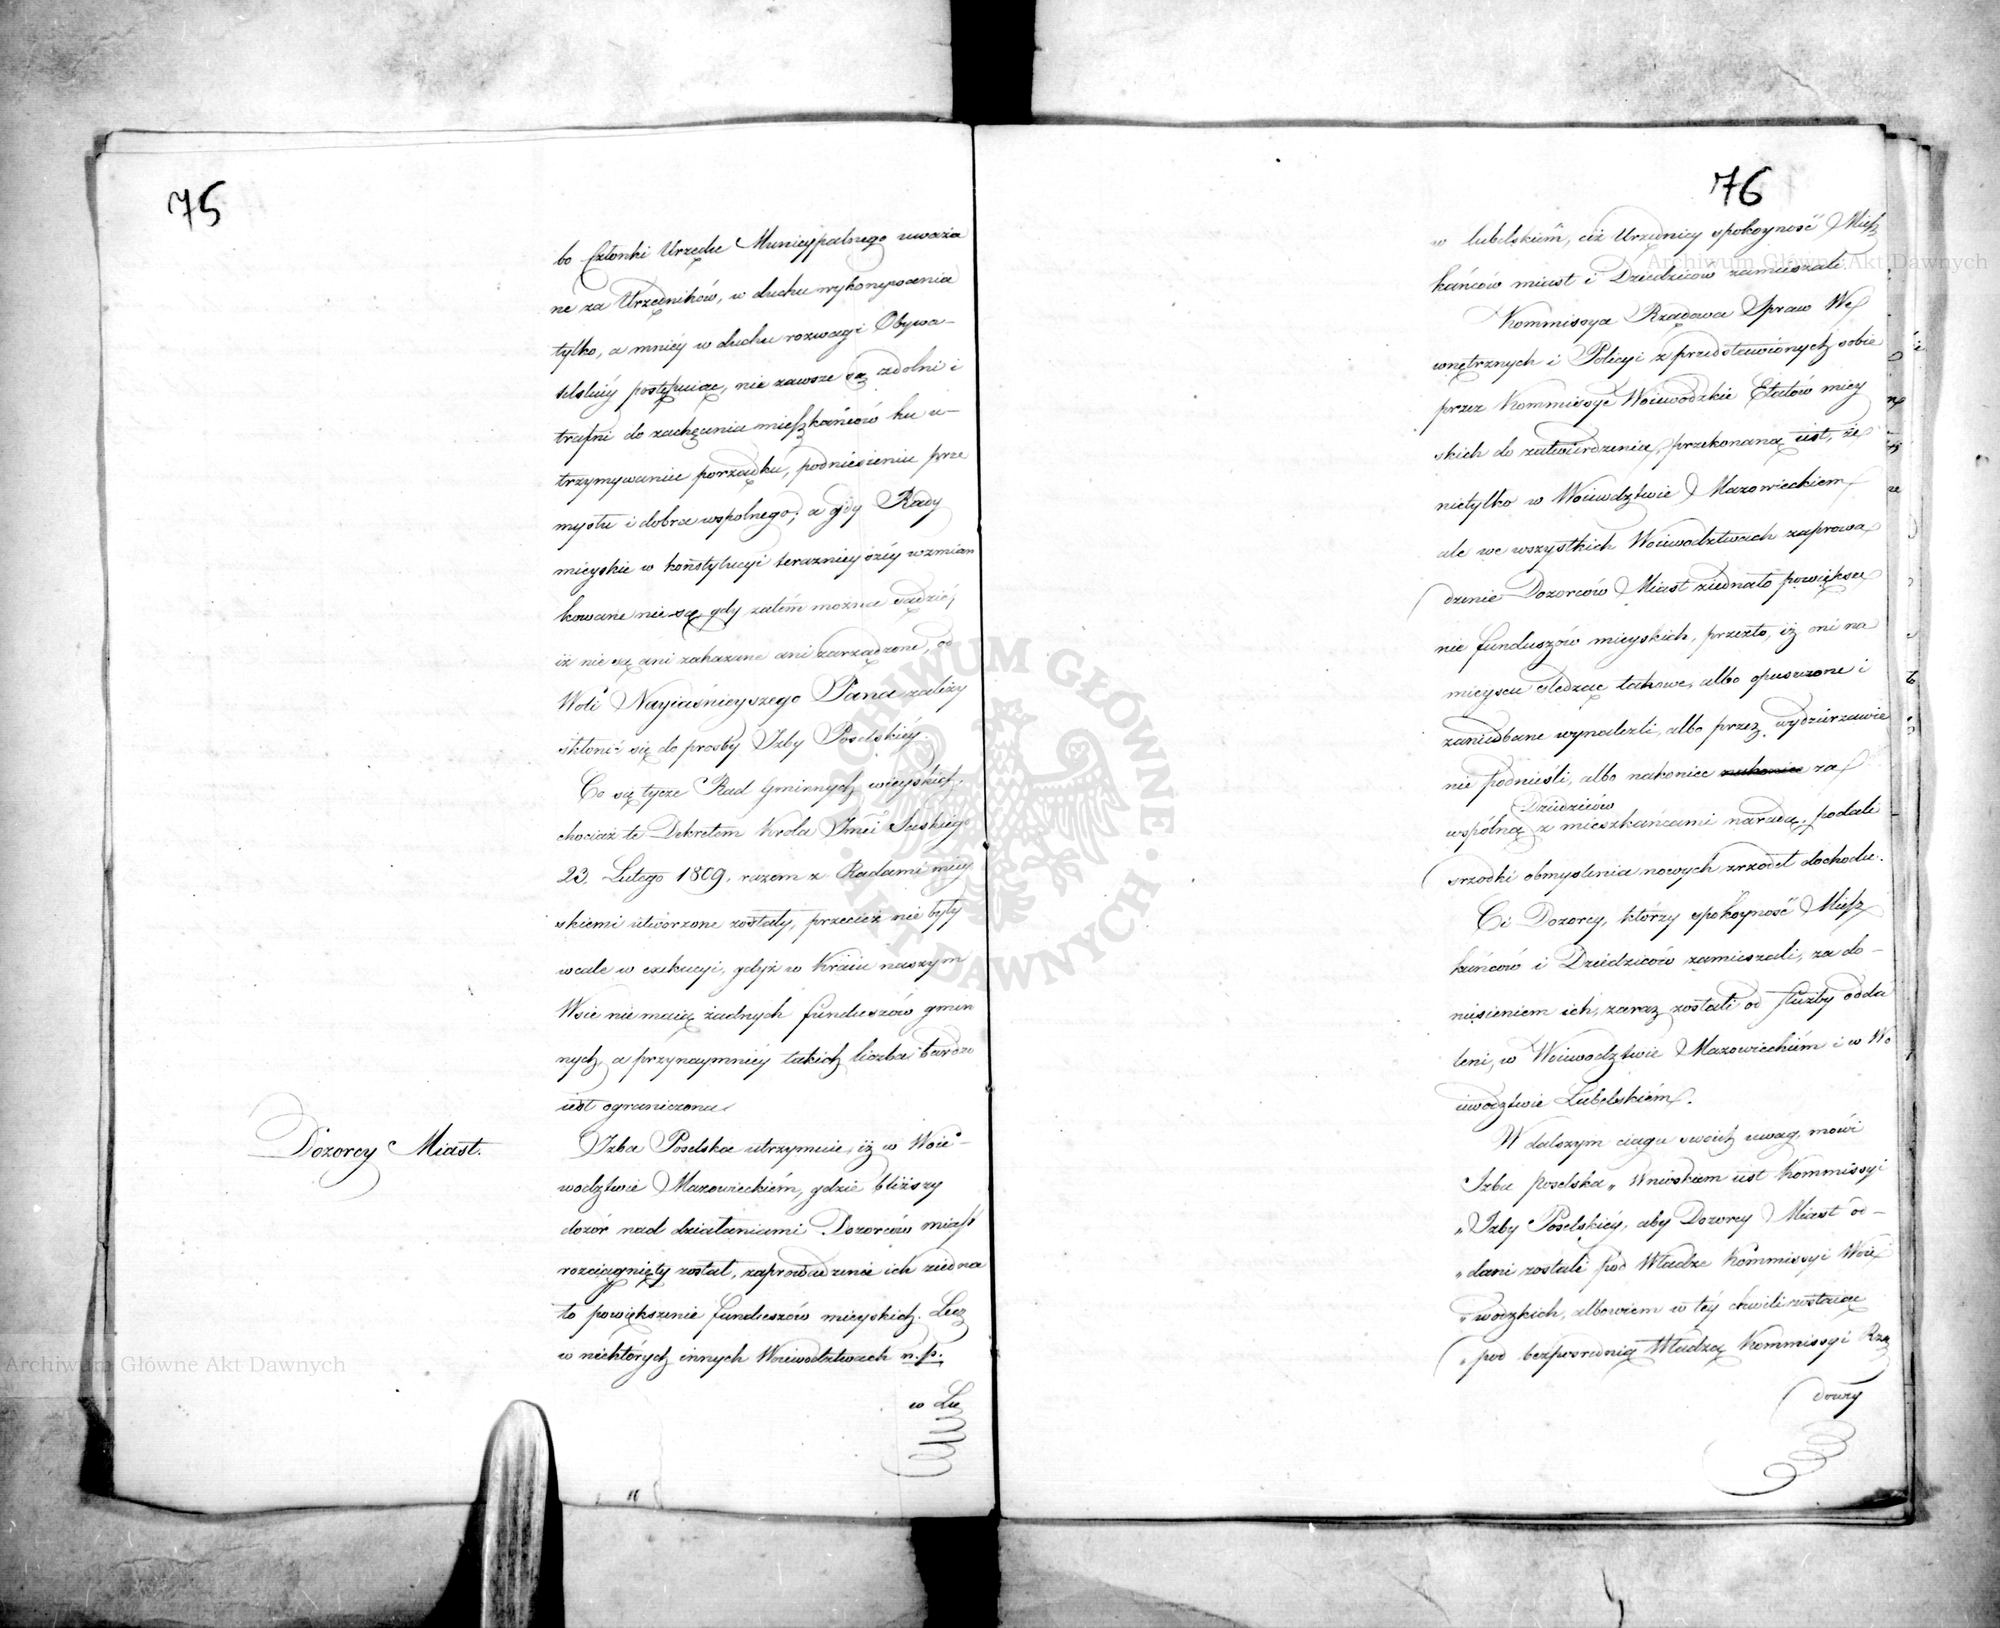 75
bo Członki Urzędu Municypalnego uważa
ne za Urzędników, w duchu wykonywania
tylko, a mniéy w duchu rozwagi Obywa-
telskiéy postępuiąc, nie zawsze są zdolni i
trafni do zachęcania mieszkańców ku u-
trzymywaniu porządku, podniesieniu prze
mysłu i dobra wspolnego; a gdy Rady
mieyskie w konstytucyi teraznieyszéy wzmian
kowane nie są, gdy zatém można sądzić,
iż nie są ani zakazane ani zarządzone, od
Woli Nayiaśnieyszego Pana zależy
skłonić się do prosby Izby Poselskiéy.
Co się tycze Rad Gminnych wieyskich,
chociaż te Dekretem Krola Jmci Saskiego
23. Lutego 1809, razem z Radami miey
skiemi utworzone zostały, przecież nie były
wcale w exekucyi, gdyż w Kraiu naszym
Wsie nie maią żadnych funduszów gmin
nych, a przynaymniéy takich liczba bardzo
iest ograniczona.
Dozorcy Miast.
Izba Poselska utrzymuie, iż w Woie-
wodztwie Mazowieckiém, gdzie bliższy
dozór nad działaniami Dozorców miast
rozciągnięty został, zaprowadzenie ich ziedna
ło powiększenie funduszów mieyskich. Lecz
w niektórych innych Woiewodztwach n.p.
w Lu
76
w lubelskiém, ciż Urzędnicy spokoyność Miesz
kańców miast i Dziedziców zamieszali.
Kommissya Rządowa Spraw We
wnętrznych i Policyi z przedstawionych sobie
przez Kommissye Woiewodzkie Etatów miey
skich do zatwierdzenia, przekonaną iest, że
nietylko w Woiewdztwie Mazowieckiem
ale we wszystkich Woiewodztwach zaprowa
dzenie Dozorców Miast ziednało powiększe
nie funduszów mieyskich, przezto, iż oni na
mieyscu śledząc takowe, albo opuszczone i
zaniedbane wynalezli, albo przez wydzierżawie
nie podnieśli, albo nakoniec nakoniec za
Dziedziców
wspólną z mieszkańcami naradą, podali
srzodki obmyslenia nowych zrzodeł dochodu.
Ci Dozorcy, którzy spokoyność Miesz
kańców i Dziedziców zamieszali, za do-
niesieniem ich, zaraz zostali od służby odda
leni, w Woiewodztwie Mazowieckiém i w Wo
iewodztwie Lubelskiém.
W dalszym ciągu swoich uwag, mówi
Izba poselska „Wnioskiem iest Kommissyi
„Izby Poselskiéy, aby Dozorcy Miast od-
„dani zostali pod Władze Kommissyi Woie
„wodzkich, albowiem w téy chwili zostaiąc
„pod bezpośrednią Władzą Kommissyi Rzą
dowéy
Archiwum Główne Akt Dawnych
Archiwum Główne Akt Dawnych
ARCHIWUM GŁÓWNE AKT DAWNYCH